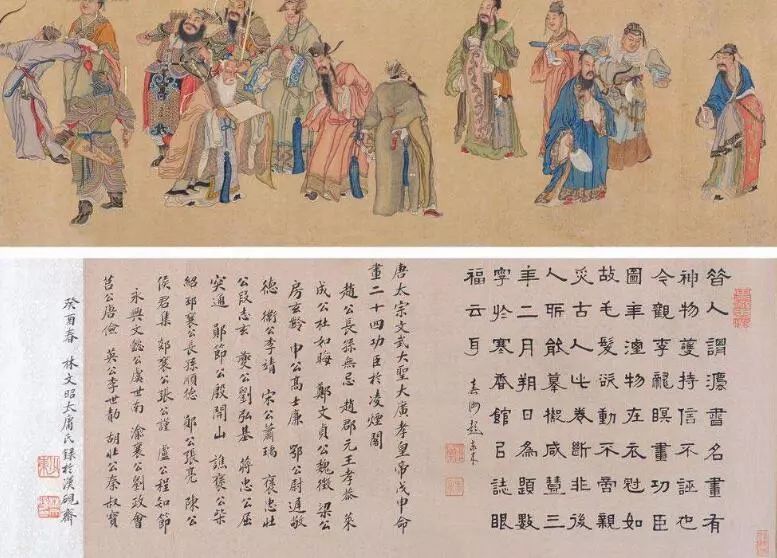 昔人謂灋書名畫有
神物護持信不誣也
今觀李龍眠畫功臣
圖年湮物在衣冠如
故毛髮欲動不啻親
炙古人此卷斷非後
人所能摹擬咸豐三
年二月朔日為題數
字於寒香館以誌眼
福云耳
唐太宗文武大聖大廣孝皇帝戊申命
畫二十四功臣於凌煙閣
趙公長孫無忌 趙郡元王孝恭 萊
成公杜如晦 鄭文貞公魏徵 梁公
房玄齡 申公高士廉 鄂公尉遲敬
德 衛公李靖 宋公蕭瑀 褒忠壯
公段志玄 夔公劉弘基 蔣忠公屈
突通 鄖節公殷開山 譙襄公柴
紹 邳襄公長孫順德 鄖公張亮 陳公
侯君集 郯襄公張公謹 盧公程知節
永興文懿公虞世南 渝襄公劉政會
莒公唐儉 英公李世勣 胡壯公秦叔寶
癸酉春 林文昭太膚氏錄於漢硯齋